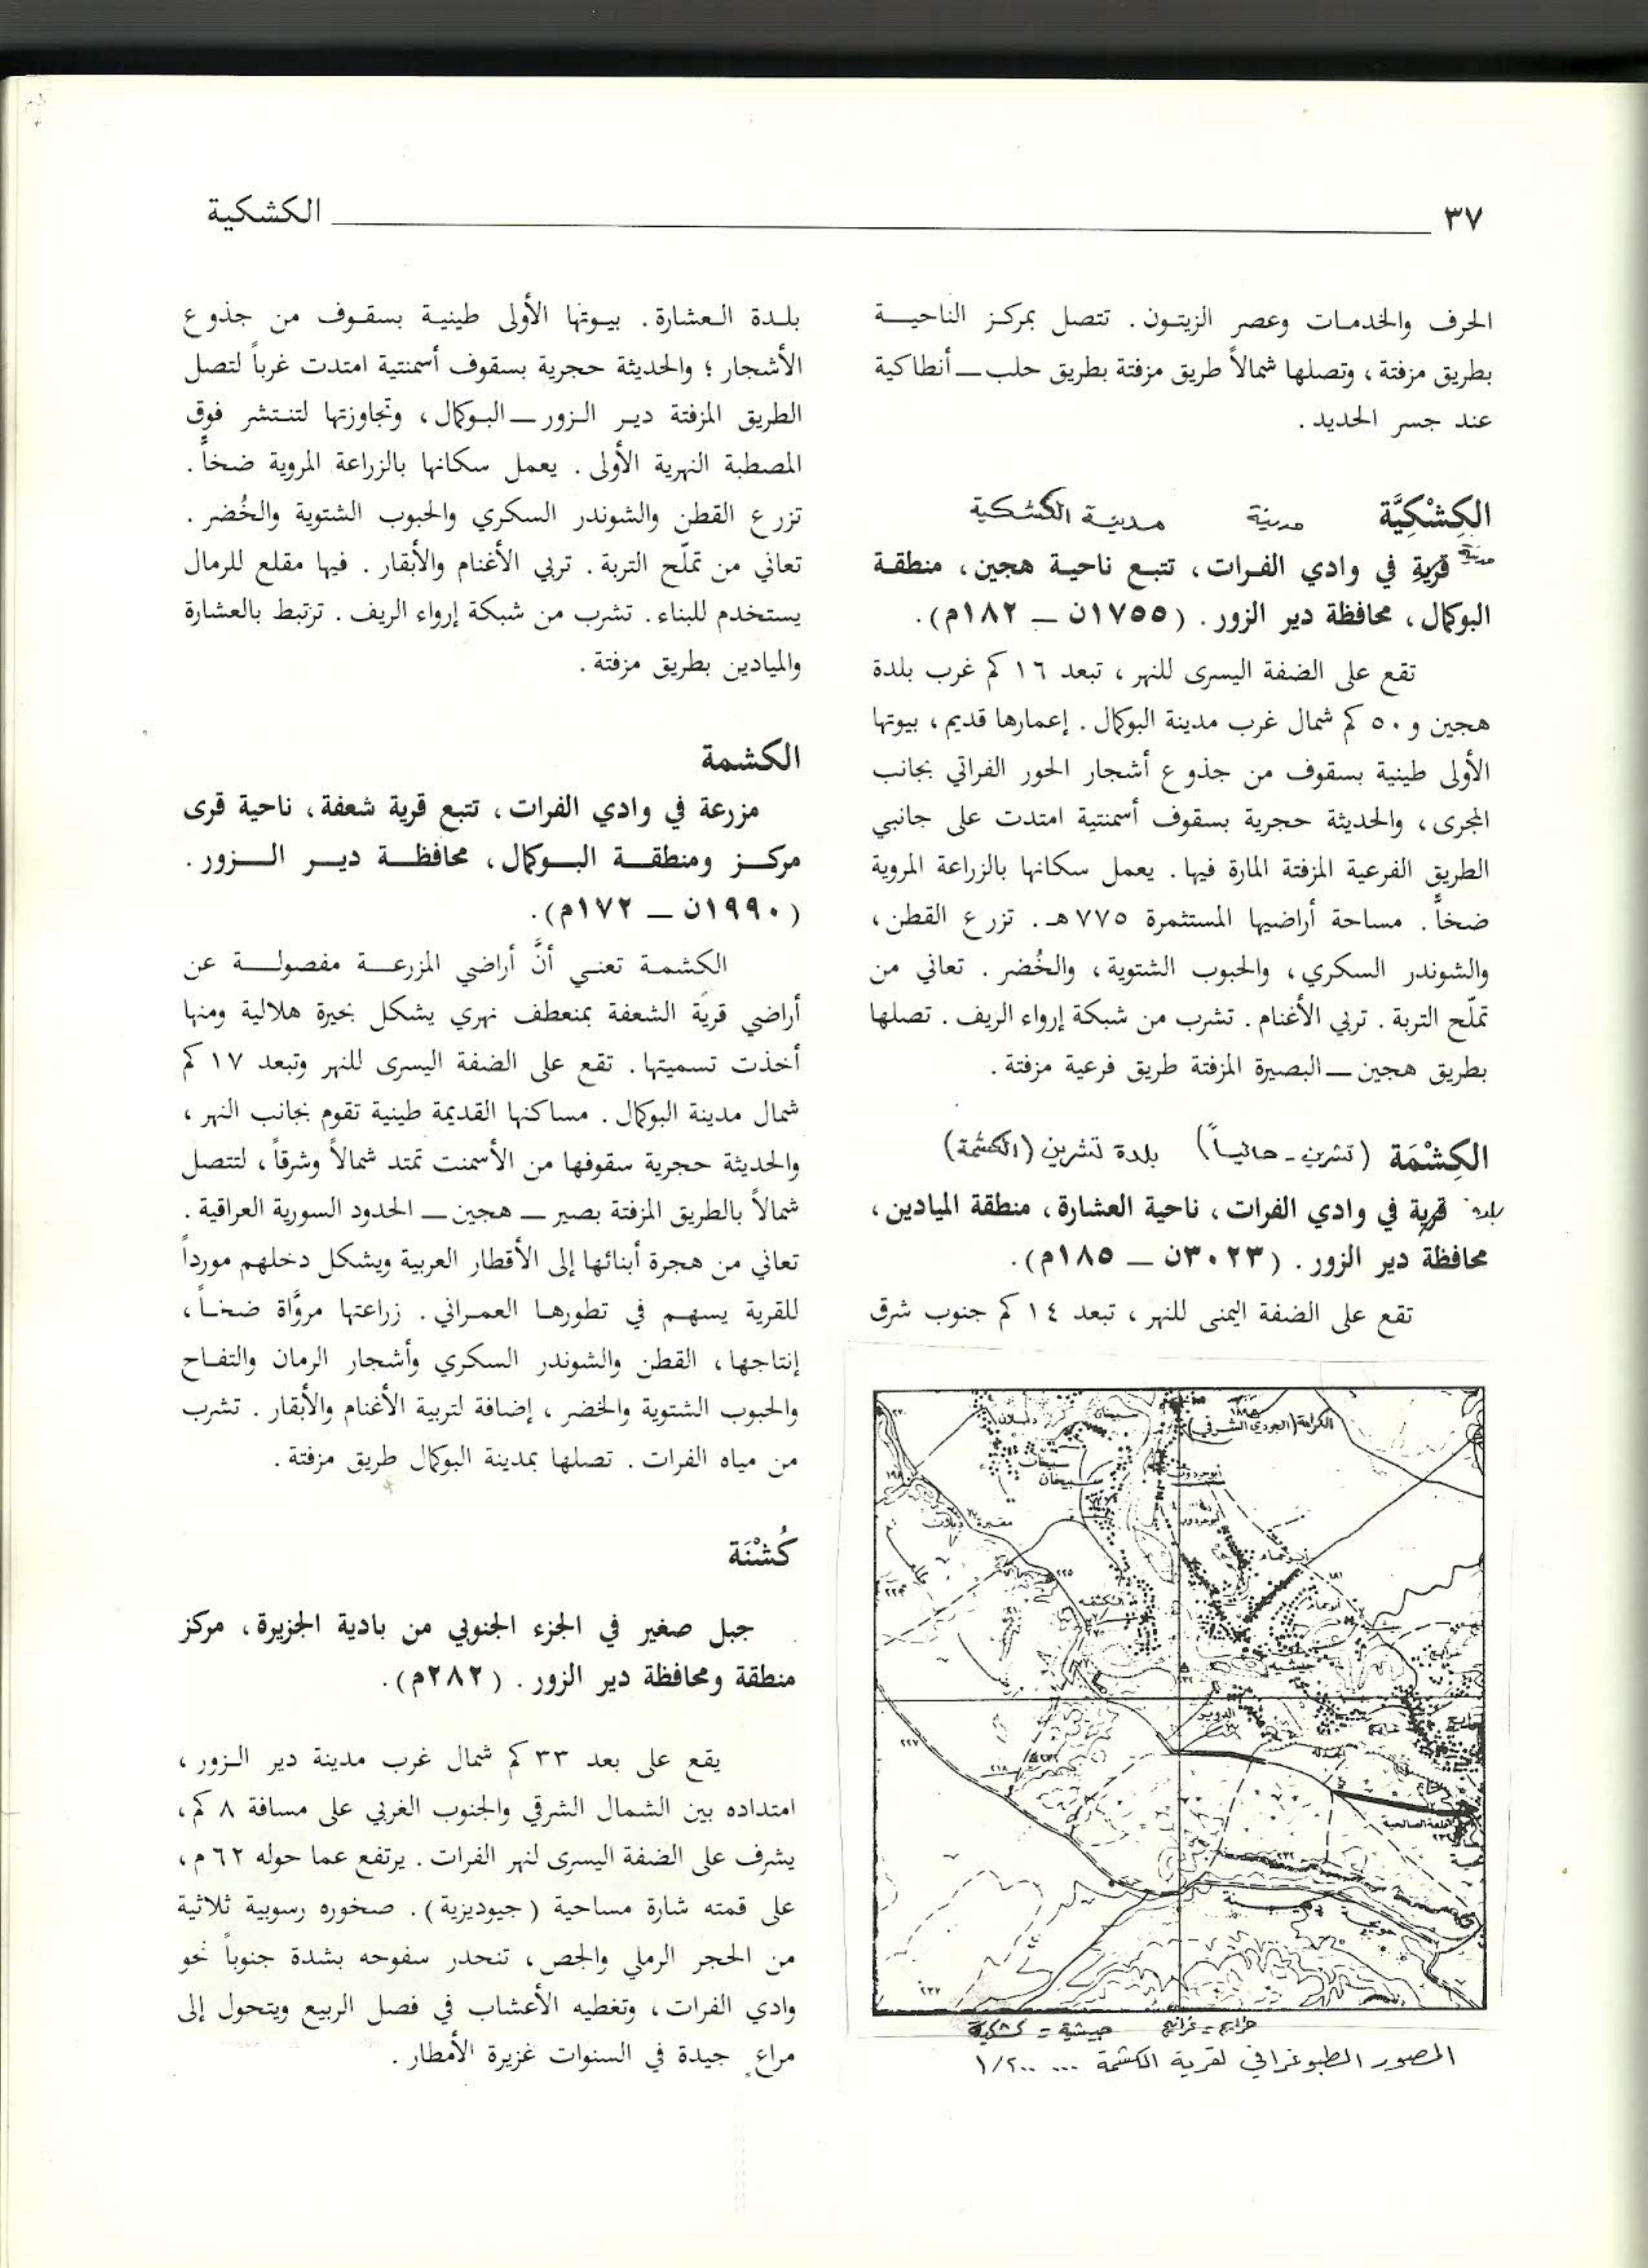 ٣٧
الكشكية
الحرف والخدمات وعصر الزيتون. تتصل بمركز الناحية
بطريق مزفتة، وتصلها شمالاً طريق مزفتة بطريق حلب ــ أنطاكية
عند جسر الحديد.
الكِشْكِيَّة مدينة مدينة الكشكية
مدينة قرية في وادي الفرات، تتبع ناحية هجين، منطقة
البوكمال، محافظة دير الزور. (١٧٥٥ن ــ ١٨٢م).
تقع على الضفة اليسرى للنهر، تبعد ١٦ كم غرب بلدة
هجين و ٥٠ كم شمال غرب مدينة البوكمال. إعمارها قديم، بيوتها
الأولى طينية بسقوف من جذوع أشجار الحور الفراتي بجانب
المجرى، والحديثة حجرية بسقوف أسمنتية امتدت على جانبي
الطريق الفرعية المزفتة المارة فيها. يعمل سكانها بالزراعة المروية
ضخاً. مساحة أراضيها المستثمرة ٧٧٥ هـ. تزرع القطن،
والشوندر السكري، والحبوب الشتوية، والخُضر. تعاني من
تملّح التربة. تربي الأغنام. تشرب من شبكة إرواء الريف. تصلها
بطريق هجين ــ البصيرة المزفتة طريق فرعية مزفتة.
الكِشْمَة (تشرين - حالياً) بلدة تشرين (الكشمة)
بلدة قرية في وادي الفرات، ناحية العشارة، منطقة الميادين،
محافظة دير الزور. (٣٠٢٣ن ــ ١٨٥م).
تقع على الضفة اليمنى للنهر، تبعد ١٤ كم جنوب شرق
الكرامة (الجردي الشرقي)
دبلان
سبيخان
مقبرة دبلان
الكشمه
ابوحردوب
ابوحمام
غرانيج
قلعة الصالحية
٢٢٥
٢٣٧
غرانيج = غرانيج حبيشية = كشكية
المصور الطبوغرافي لقرية الكشمة ١/٢٠٠٠٠٠
بلدة العشارة. بيوتها الأولى طينية بسقوف من جذوع
الأشجار؛ والحديثة حجرية بسقوف أسمنتية امتدت غرباً لتصل
الطريق المزفتة دير الزور ــ البوكمال، وتجاوزتها لتنتشر فوق
المصطبة النهرية الأولى. يعمل سكانها بالزراعة المروية ضخاً.
تزرع القطن والشوندر السكري والحبوب الشتوية والخُضر.
تعاني من تملّح التربة. تربي الأغنام والأبقار. فيها مقلع للرمال
يستخدم للبناء. تشرب من شبكة إرواء الريف. ترتبط بالعشارة
والميادين بطريق مزفتة.
الكشمة
مزرعة في وادي الفرات، تتبع قرية شعفة، ناحية قرى
مركز ومنطقة البوكمال، محافظة دير الزور.
(١٩٩٠ن ــ ١٧٢م).
الكشمة تعني أنَّ أراضي المزرعة مفصولة عن
أراضي قرية الشعفة بمنعطف نهري يشكل بحيرة هلالية ومنها
أخذت تسميتها. تقع على الضفة اليسرى للنهر وتبعد ١٧ كم
شمال مدينة البوكمال. مساكنها القديمة طينية تقوم بجانب النهر،
والحديثة حجرية سقوفها من الأسمنت تمتد شمالاً وشرقاً، لتتصل
شمالاً بالطريق المزفتة بصير ــ هجين ــ الحدود السورية العراقية.
تعاني من هجرة أبنائها إلى الأقطار العربية ويشكل دخلهم مورداً
للقرية يسهم في تطورها العمراني. زراعتها مروَّاة ضخاً،
إنتاجها، القطن والشوندر السكري وأشجار الرمان والتفاح
والحبوب الشتوية والخضر، إضافة لتربية الأغنام والأبقار. تشرب
من مياه الفرات. تصلها بمدينة البوكمال طريق مزفتة.
كُشْنَة
جبل صغير في الجزء الجنوبي من بادية الجزيرة، مركز
منطقة ومحافظة دير الزور. (٢٨٢م).
يقع على بعد ٣٣ كم شمال غرب مدينة دير الزور،
امتداده بين الشمال الشرقي والجنوب الغربي على مسافة ٨ كم،
يشرف على الضفة اليسرى لنهر الفرات. يرتفع عما حوله ٦٢ م،
على قمته شارة مساحية (جيوديزية). صخوره رسوبية ثلاثية
من الحجر الرملي والجص، تنحدر سفوحه بشدة جنوباً نحو
وادي الفرات، وتغطيه الأعشاب في فصل الربيع ويتحول إلى
مراعٍ جيدة في السنوات غزيرة الأمطار.